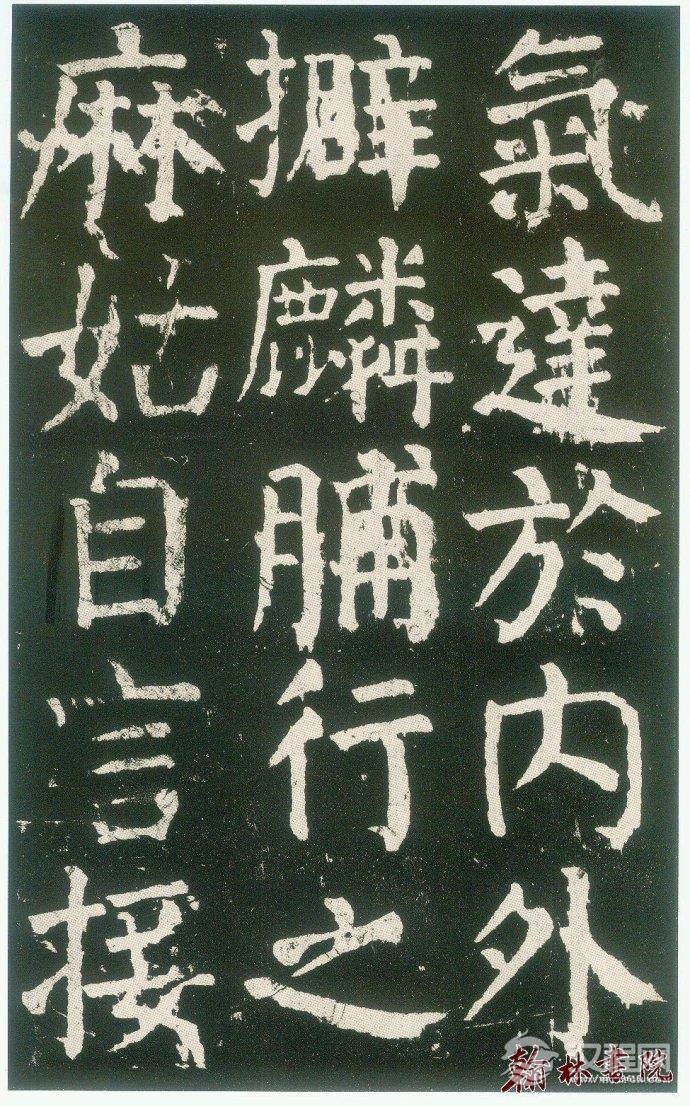 氣達於内外
擗麟脯行之
麻姑自言接
汉程网
翰林書院